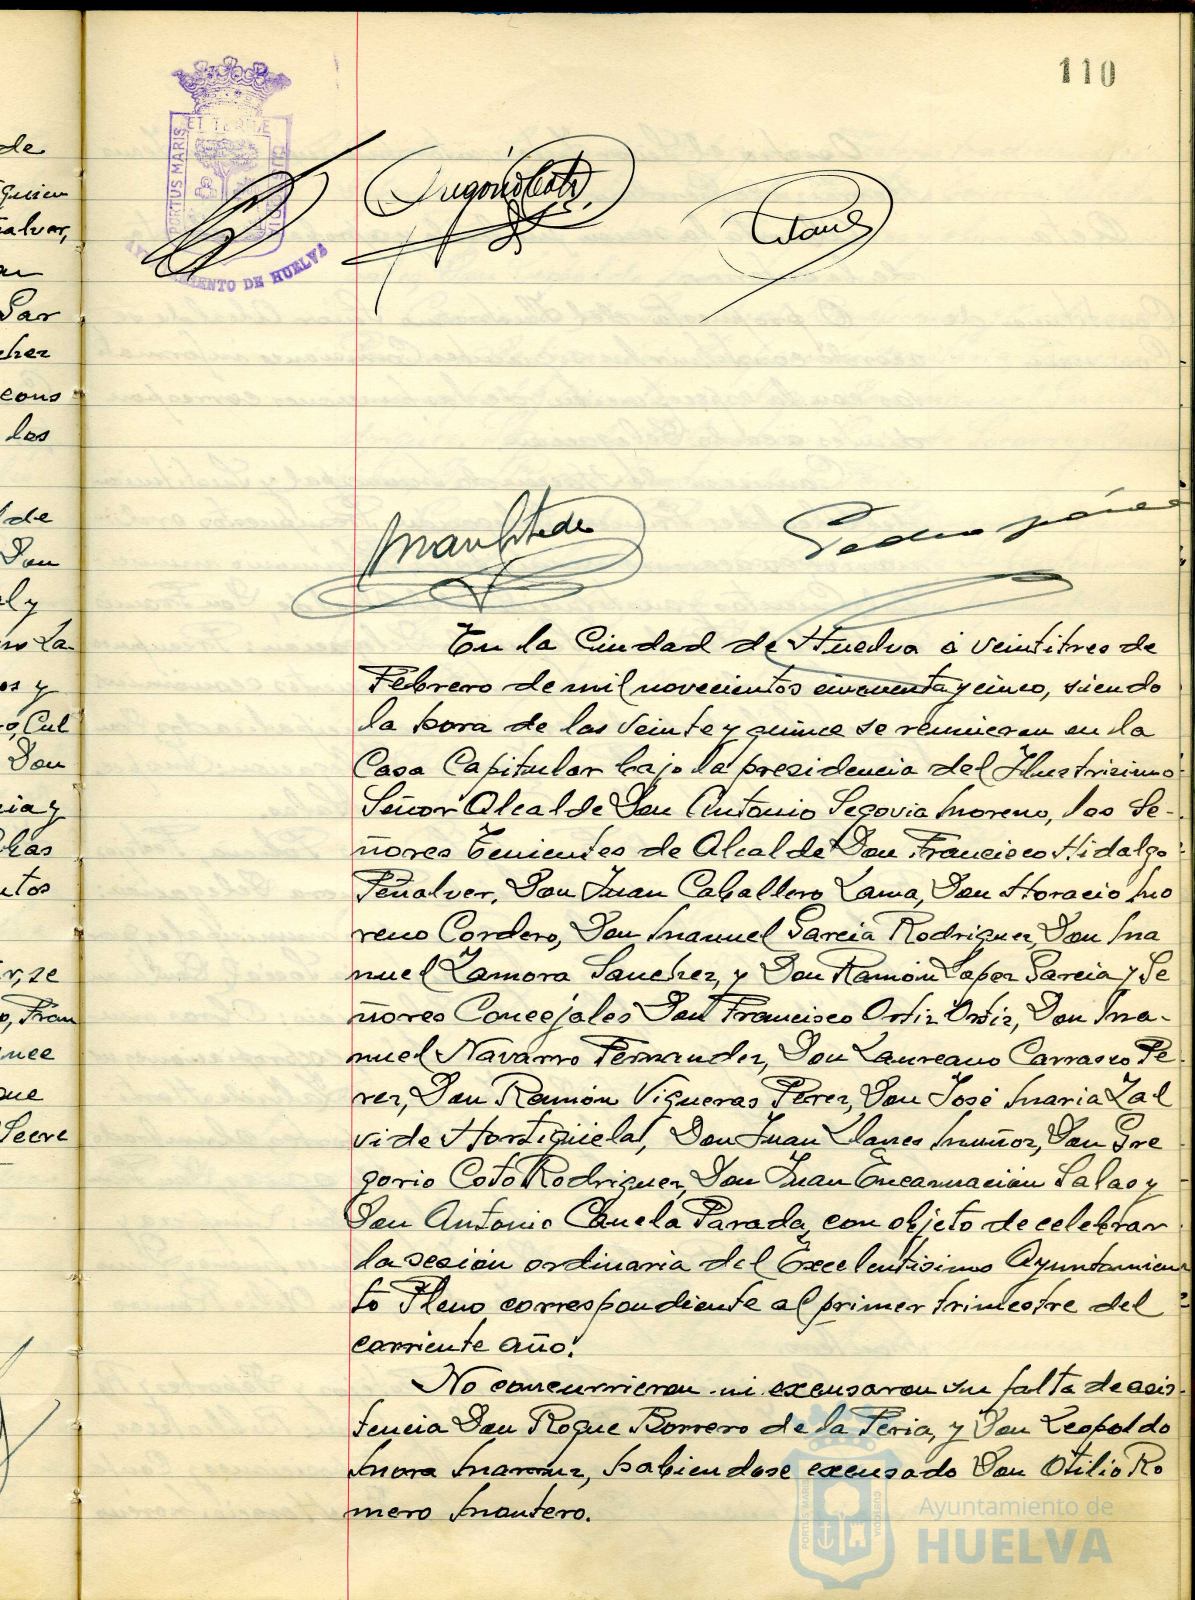 110
PORTUS MARIS
AYUNTAMIENTO DE HUELVA
de
Par
cons
los
de
Don
y
os y
Don
Secre
En la Ciudad de Huelva á veintitres de
Febrero de mil novecientos cincuenta y cinco, siendo
la hora de las veinte y quince se reunieron en la
Casa Capitular bajo la presidencia del Ilustrisimo
Señor Alcalde Don Antonio Segovia Moreno, los Se-
ñores Tenientes de Alcalde Don Francisco Hidalgo
Peñalver, Don Juan Caballero Lama, Don Horacio Mo
reno Cordero, Don Manuel Garcia Rodriguez, Don Ma
nuel Zamora Sanchez, y Don Ramón Lopez Garcia y Se
ñores Concejales Don Francisco Ortiz Ortiz, Don Ma-
nuel Navarro Fernandez, Don Laureano Carrasco Pe
rez, Don Ramón Vigueras Perez, Don José Maria Zal
vide Hortigüela, Don Juan Llanes Muñoz, Don Gre
gorio Coto Rodriguez, Don Juan Encarnación Salas y
Don Antonio Canela Parada, con objeto de celebrar
la sesión ordinaria del Excelentisimo Ayuntamien
to Pleno correspondiente al primer trimestre del
corriente año.
No concurrieron ni excusaron su falta de asis-
tencia Don Roque Borrero de la Feria, y Don Leopoldo
Mora, habiendose excusado Don Otilio Ro
mero Mantero.
Ayuntamiento de
HUELVA